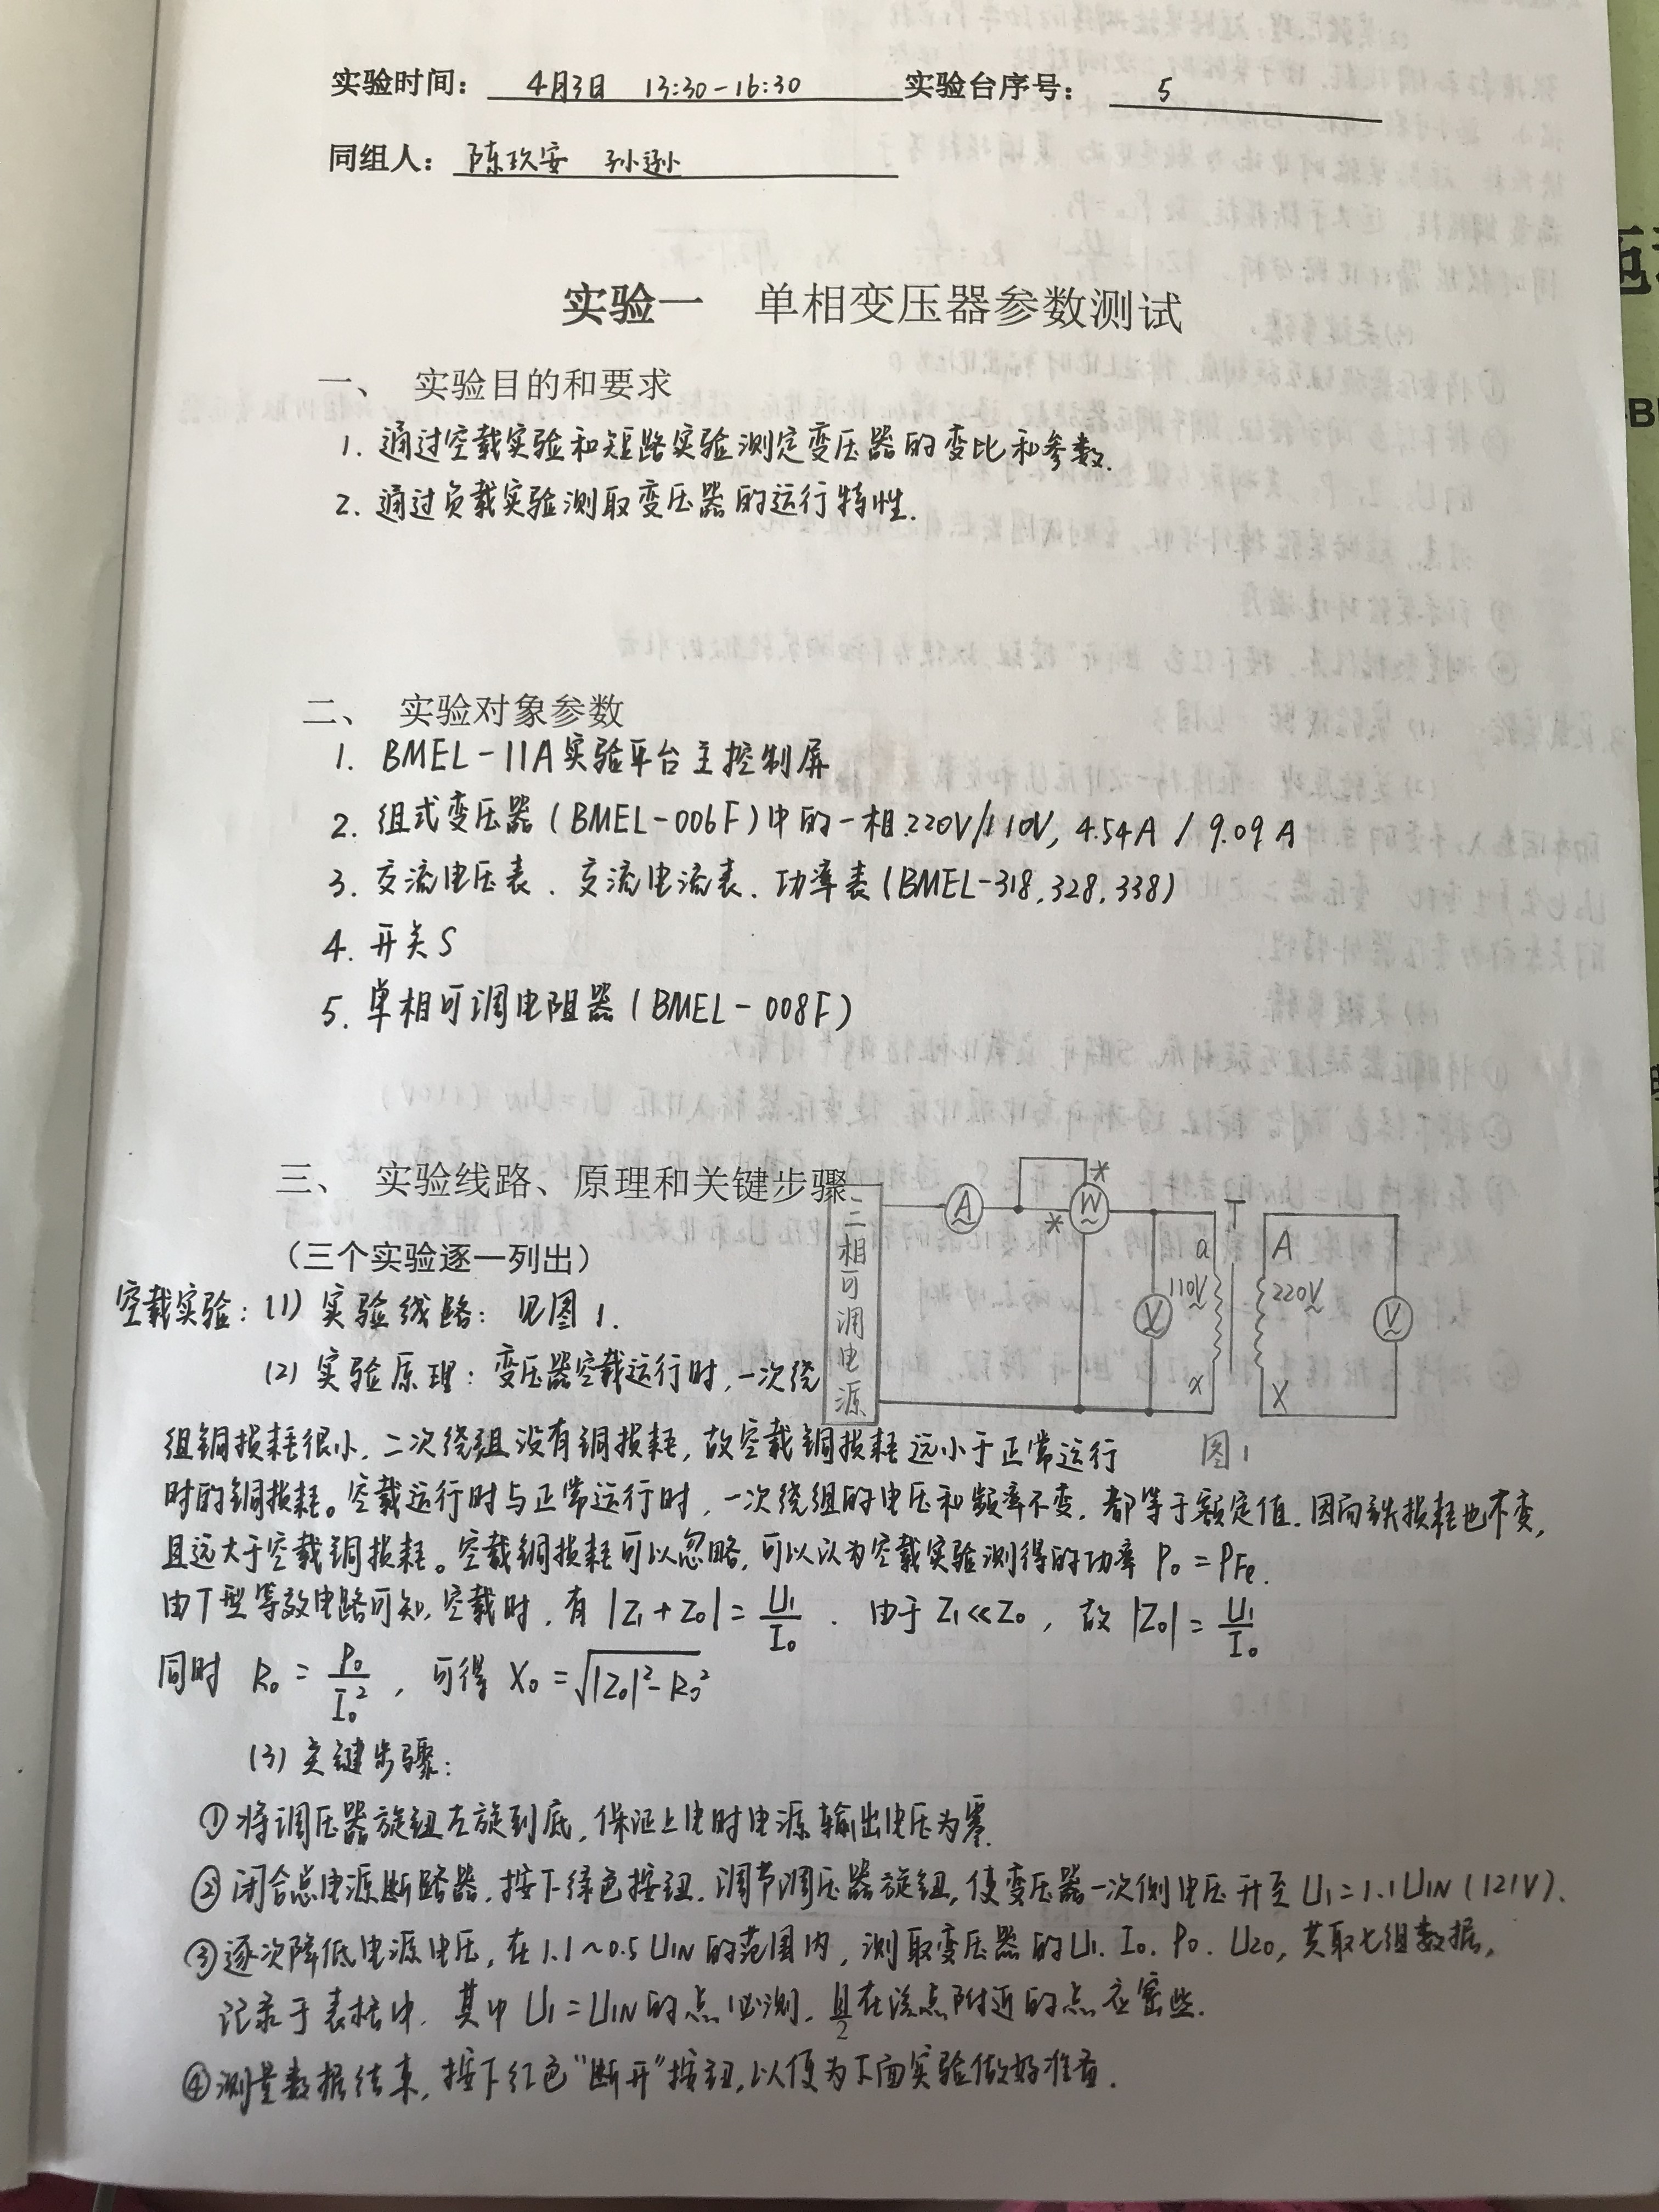 实验时间： 4月3日 13:30-16:30 实验台序号： 5
同组人： 陈玖安 孙逊
实验一 单相变压器参数测试
一、 实验目的和要求
1. 通过空载实验和短路实验测定变压器的变比和参数.
2. 通过负载实验测取变压器的运行特性.
二、 实验对象参数
1. BMEL-11A实验平台主控制屏
2. 组式变压器(BMEL-006F)中的一相.220V/110V, 4.54A / 9.09 A
3. 交流电压表、交流电流表、功率表(BMEL-318,328,338)
4. 开关S
5. 单相可调电阻器(BMEL-008F)
三、 实验线路、原理和关键步骤
（三个实验逐一列出）
三相可调电源
A
*
*
W
V
a
110V
x
T
A
220V
X
V
图1
空载实验: (1) 实验线路: 见图1.
(2) 实验原理: 变压器空载运行时,一次绕
组铜损耗很小,二次绕组没有铜损耗,故空载铜损耗远小于正常运行
时的铜损耗。空载运行时与正常运行时,一次绕组的电压和频率不变,都等于额定值.因而铁损耗也不变,
且远大于空载铜损耗。空载铜损耗可以忽略,可以认为空载实验测得的功率 P₀ = PFe.
由T型等效电路可知,空载时,有 |Z₁+Z₀| = U₁/I₀ . 由于 Z₁≪Z₀, 故 |Z₀| = U₁/I₀
同时 R₀ = P₀/I₀² , 可得 X₀ = √(|Z₀|²-R₀²)
(3) 关键步骤:
①将调压器旋钮左旋到底,保证上电时电源输出电压为零.
②闭合总电源断路器,按下绿色按钮.调节调压器旋钮,使变压器一次侧电压升至 U₁=1.1U1N (121V).
③逐次降低电源电压,在1.1~0.5 U1N的范围内,测取变压器的U₁. I₀. P₀. U20, 共取七组数据,
记录于表格中. 其中 U₁=U1N的点必测.且在该点附近的点应密些.
④测量数据结束,按下红色"断开"按钮,以便为下面实验做好准备.